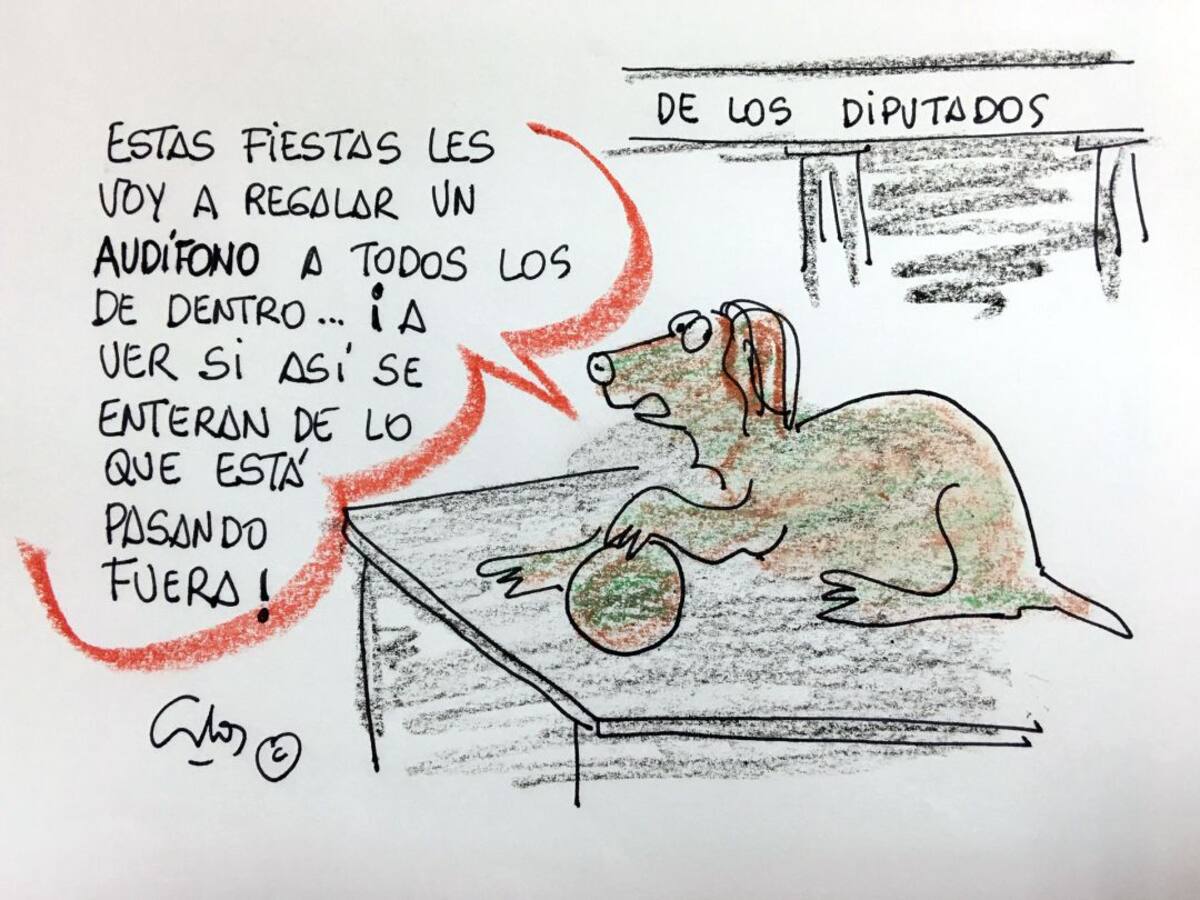 DE LOS DIPUTADOS
ESTAS FIESTAS LES
VOY A REGALAR UN
AUDÍFONO A TODOS LOS
DE DENTRO... ¡A
VER SI ASÍ SE
ENTERAN DE LO
QUE ESTÁ
PASANDO
FUERA!
©